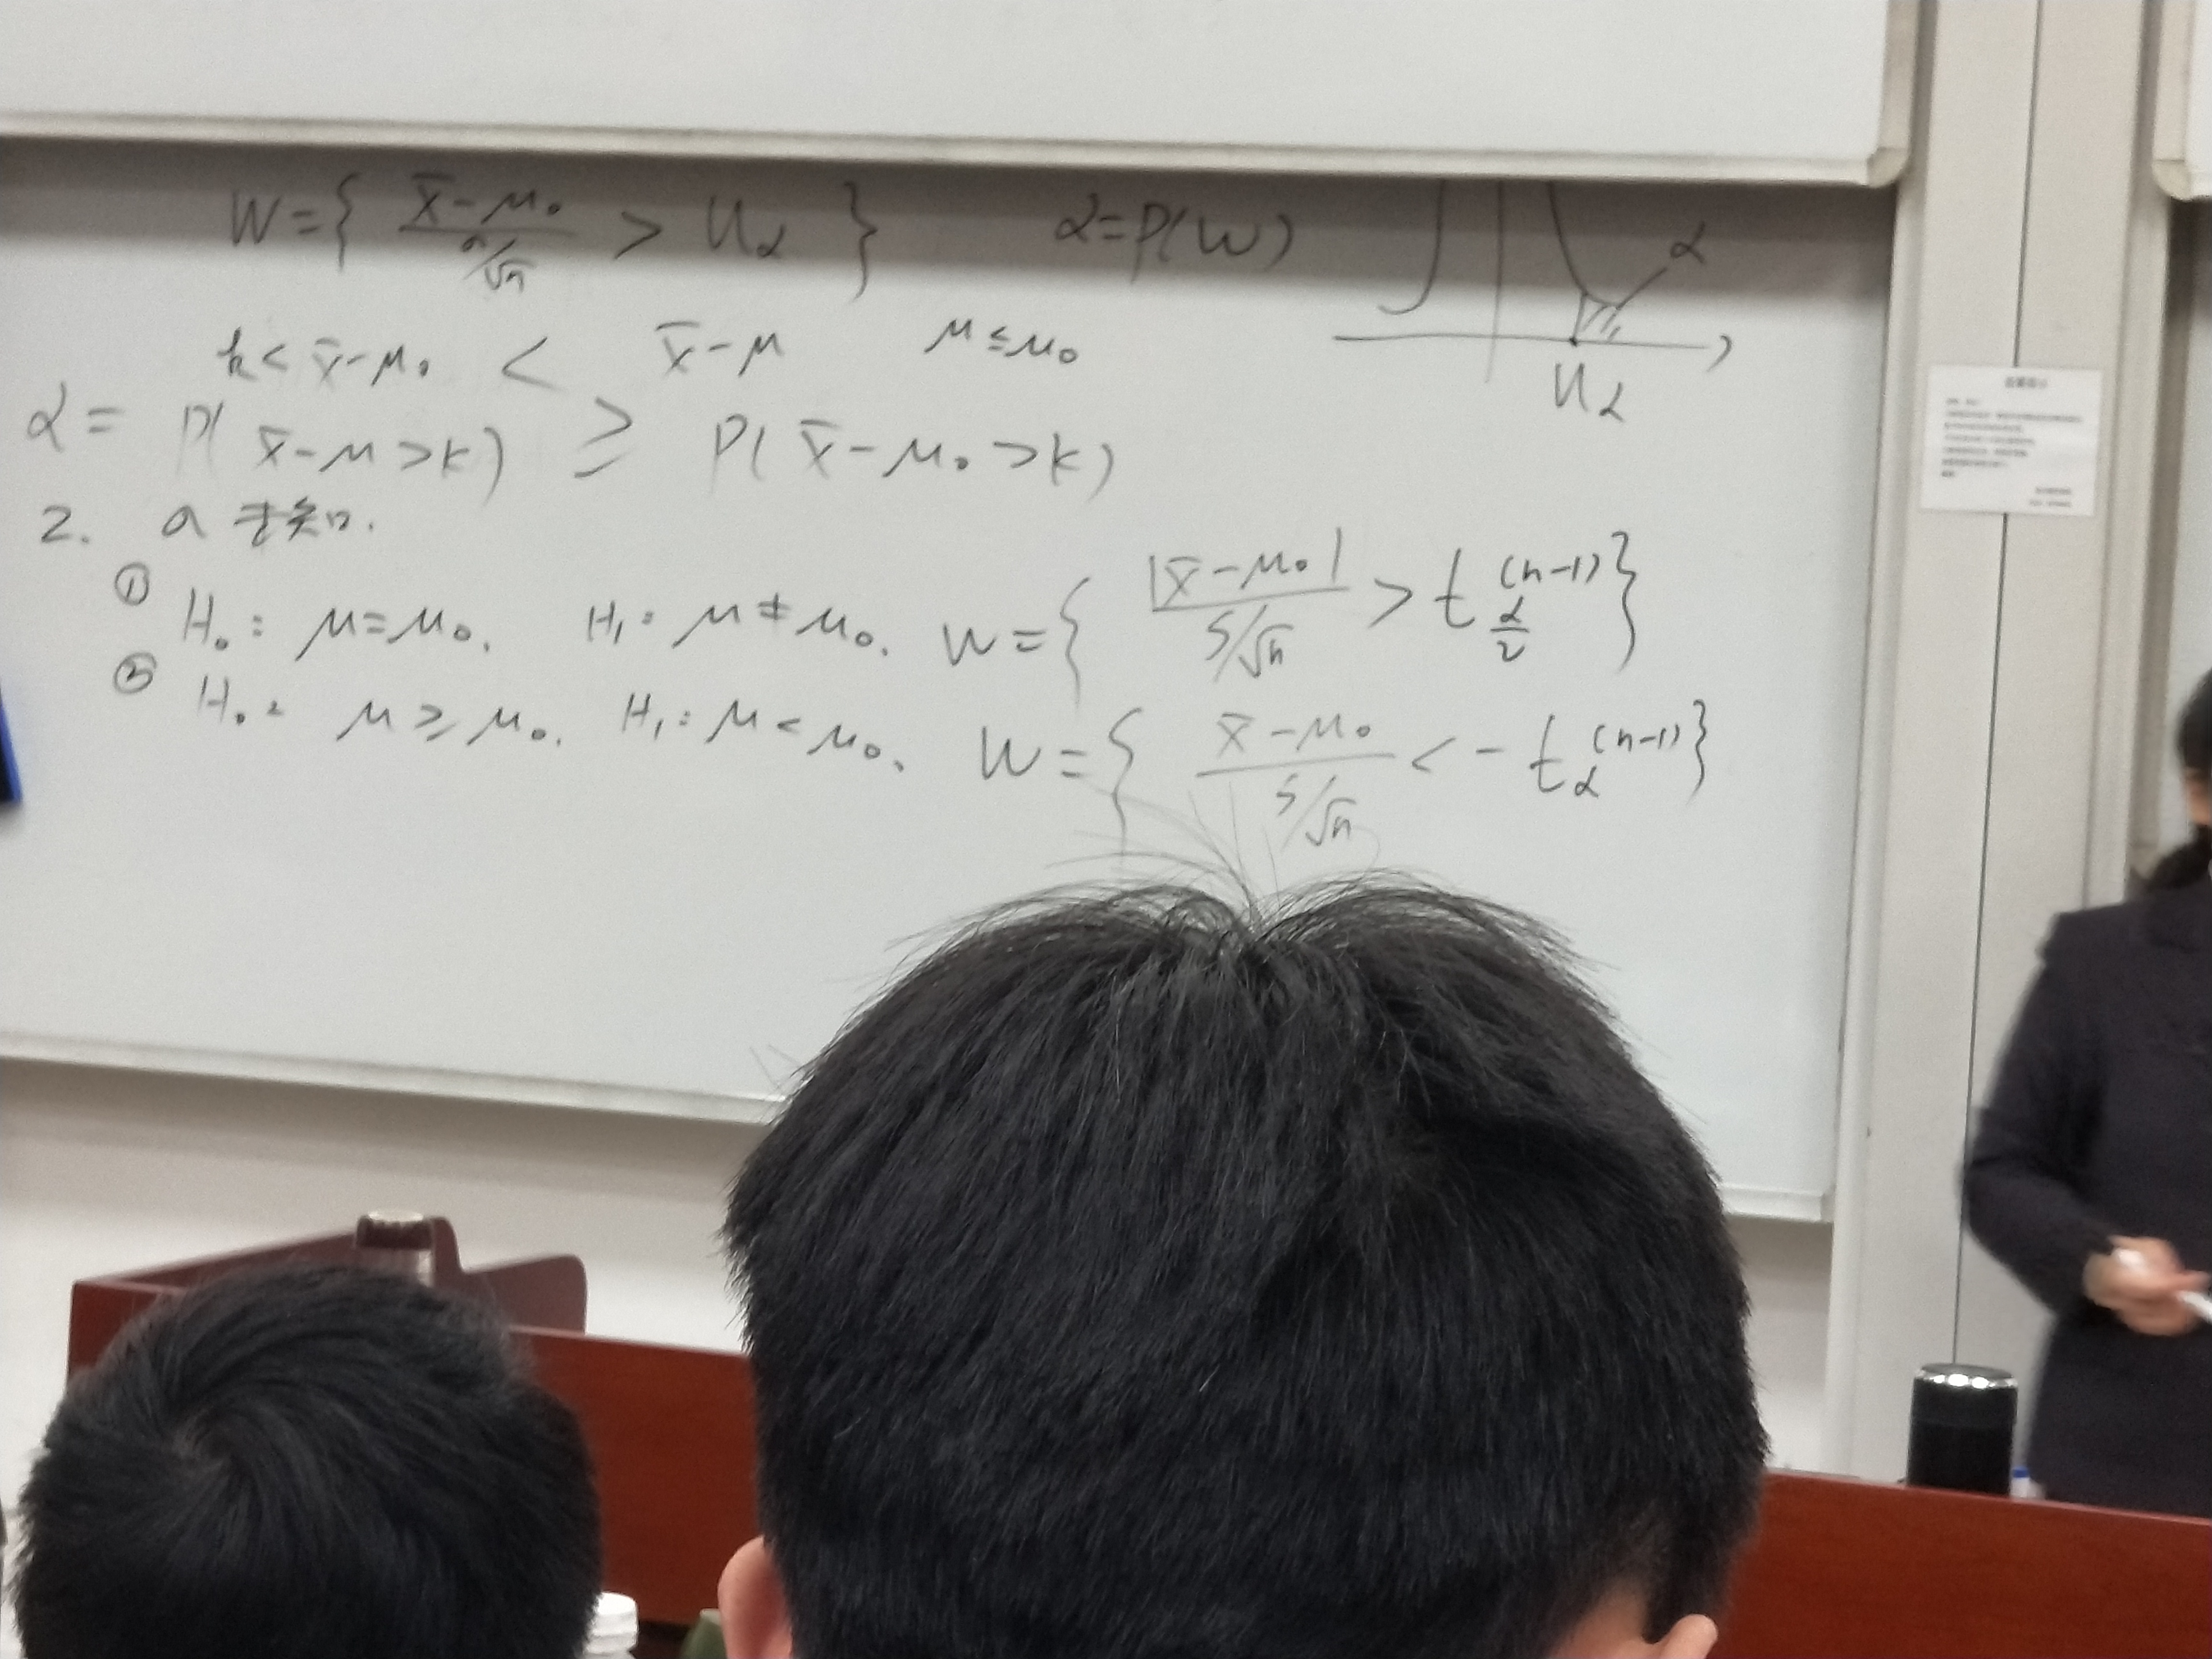 W={ (x̄-μ₀)/(σ/√n) > u_α }  α=P(W)
α
u_α
k< x̄-μ₀ < x̄-μ  μ≤μ₀
α= P( x̄-μ>k) ≥ P( x̄-μ₀>k)
2. σ 未知.
① H₀: μ=μ₀. H₁: μ≠μ₀. W={ |x̄-μ₀|/(S/√n) > t_{α/2}^{(n-1)} }
② H₀: μ≥μ₀. H₁: μ<μ₀. W={ (x̄-μ₀)/(S/√n) < -t_α^{(n-1)} }